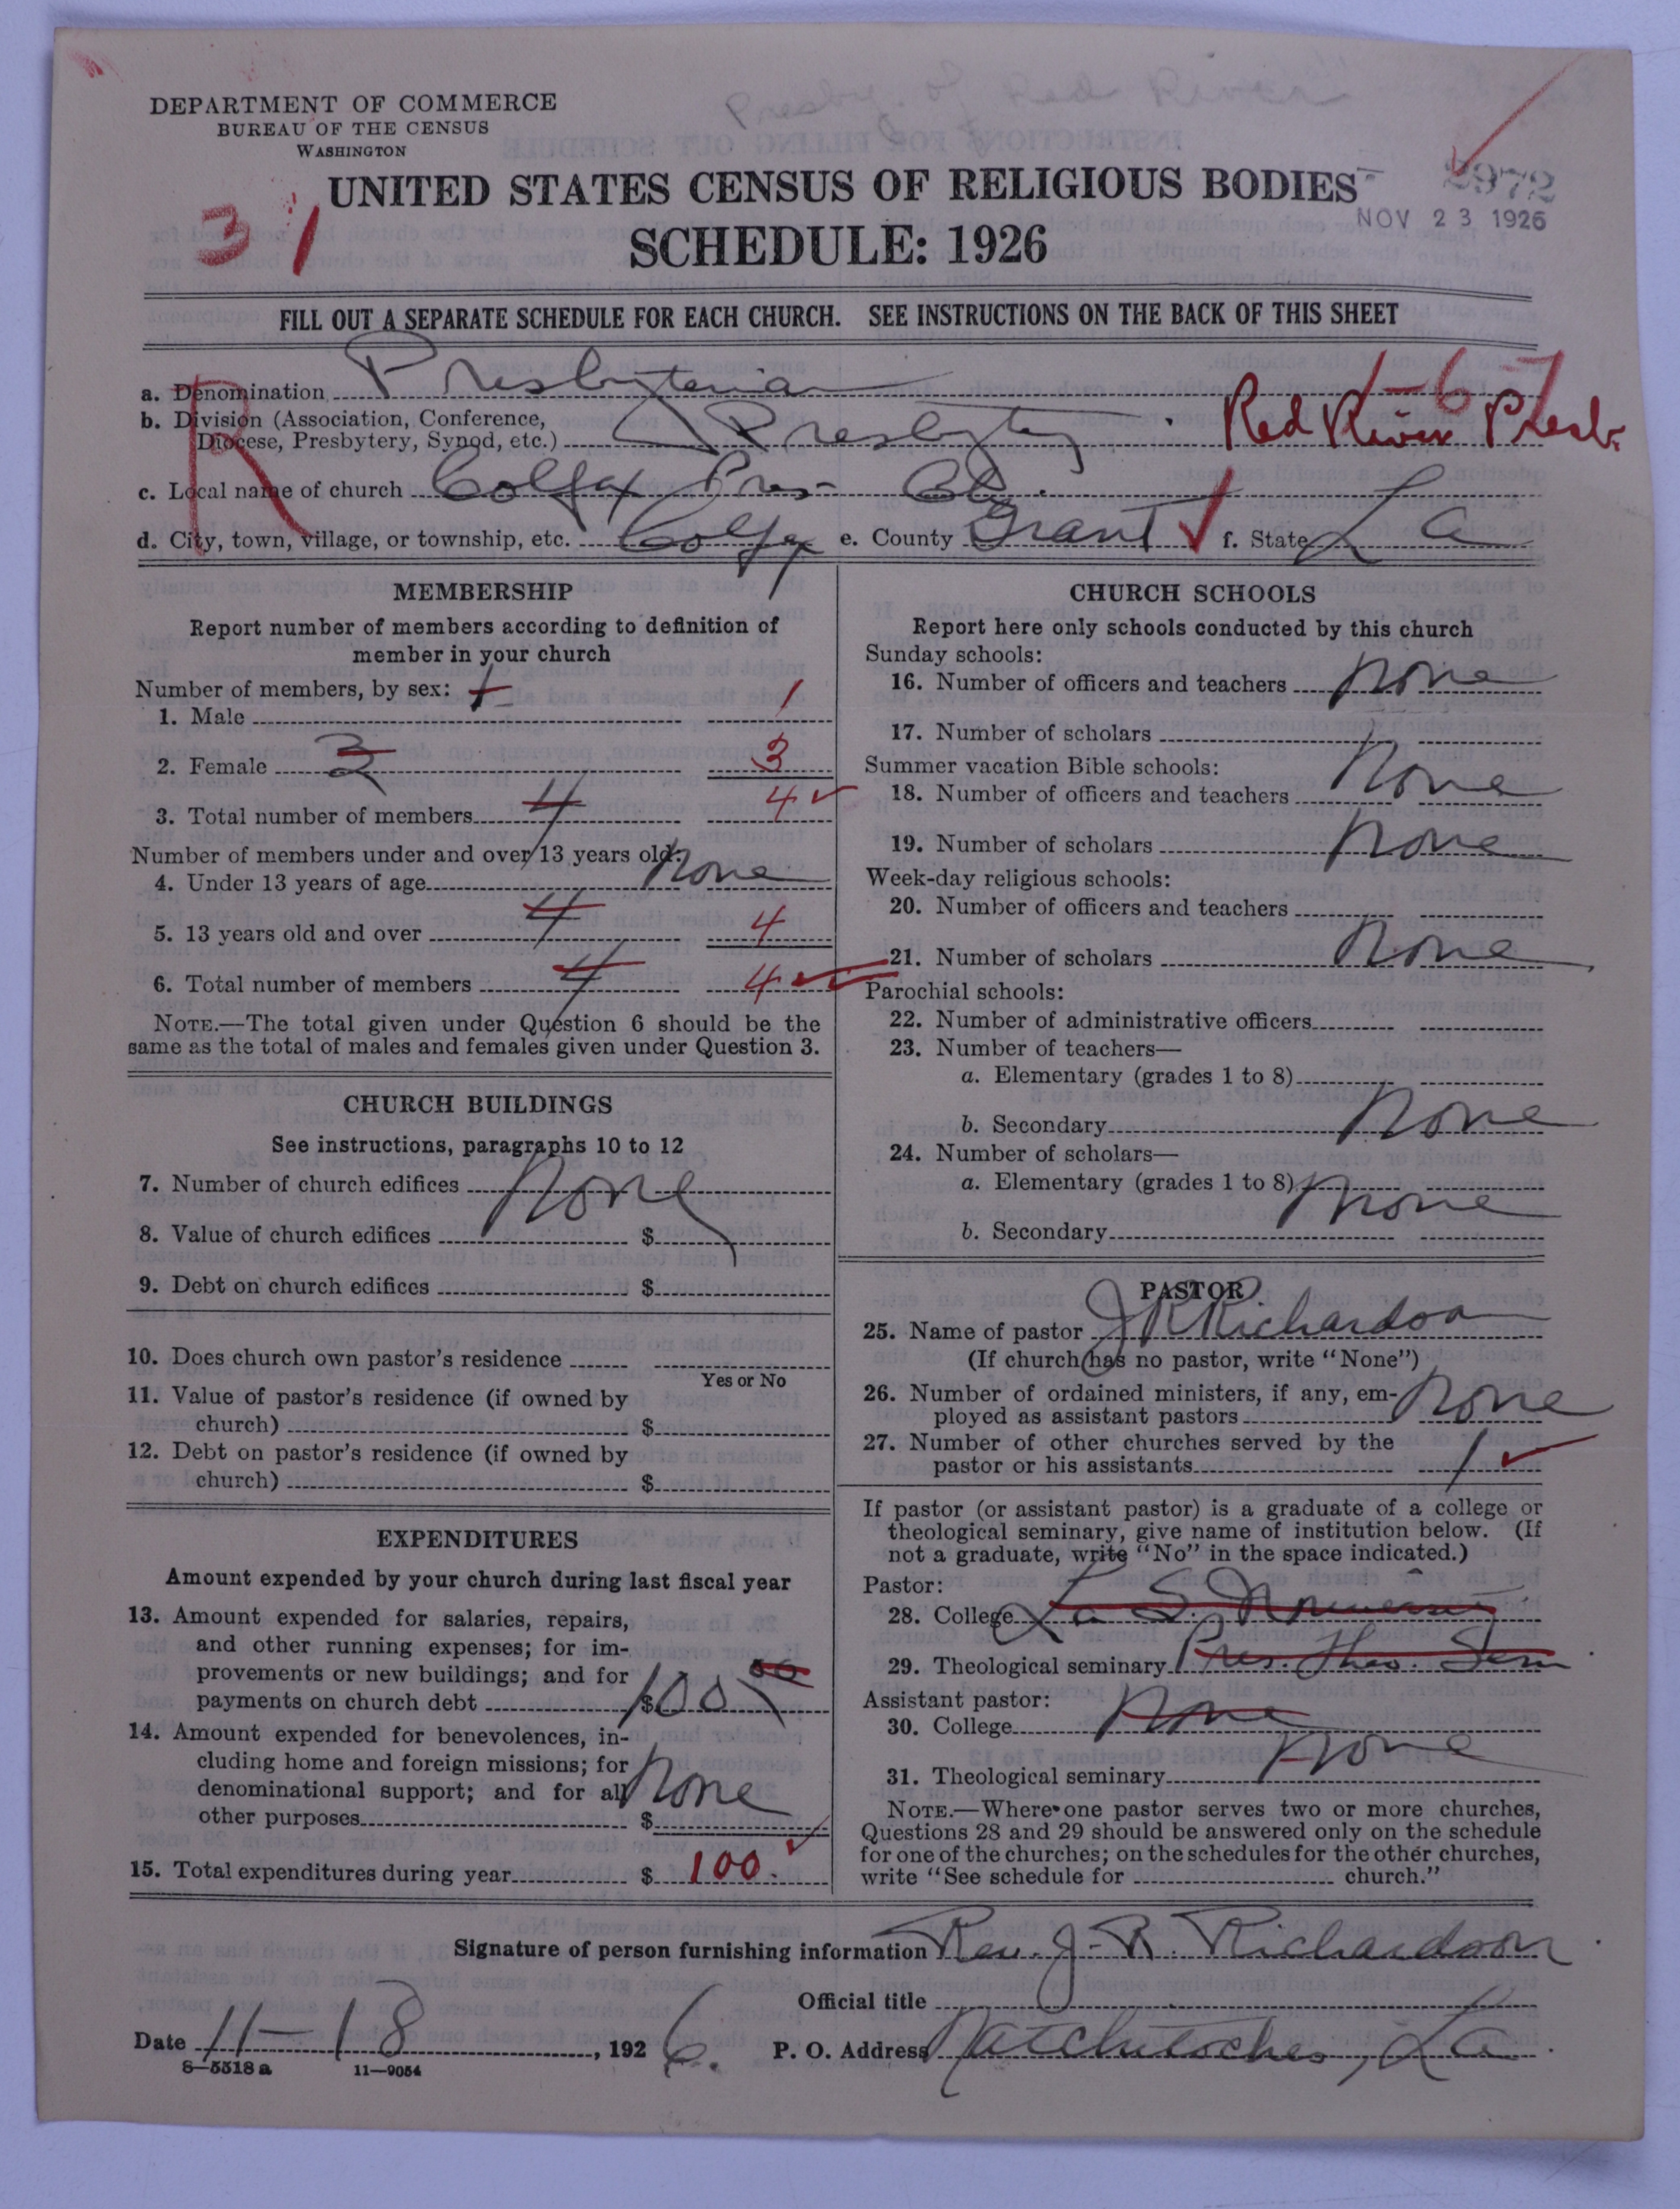 Presby. of Red River
DEPARTMENT OF COMMERCE
BUREAU OF THE CENSUS
WASHINGTON
UNITED STATES CENSUS OF RELIGIOUS BODIES
2972
NOV 23 1926
31
SCHEDULE: 1926
FILL OUT A SEPARATE SCHEDULE FOR EACH CHURCH. SEE INSTRUCTIONS ON THE BACK OF THIS SHEET
R
1-67
a. Denomination Presbyterian
b. Division (Association, Conference,
Diocese, Presbytery, Synod, etc.) Presbytery Red River Presb.
c. Local name of church Colfax Pres- Ch.
d. City, town, village, or township, etc. Colfax e. County Grant f. State La
MEMBERSHIP
Report number of members according to definition of
member in your church
Number of members, by sex: 1
1. Male 1
2. Female 3 3
3. Total number of members 4 4
Number of members under and over 13 years old:
4. Under 13 years of age none
5. 13 years old and over 4 4
6. Total number of members 4 4
NOTE.—The total given under Question 6 should be the
same as the total of males and females given under Question 3.
CHURCH BUILDINGS
See instructions, paragraphs 10 to 12
7. Number of church edifices none
8. Value of church edifices $
9. Debt on church edifices $
10. Does church own pastor's residence
Yes or No
11. Value of pastor's residence (if owned by
church) $
12. Debt on pastor's residence (if owned by
church) $
EXPENDITURES
Amount expended by your church during last fiscal year
13. Amount expended for salaries, repairs,
and other running expenses; for im-
provements or new buildings; and for
payments on church debt $100 00
14. Amount expended for benevolences, in-
cluding home and foreign missions; for
denominational support; and for all
other purposes $ none
15. Total expenditures during year $ 100.
CHURCH SCHOOLS
Report here only schools conducted by this church
Sunday schools:
16. Number of officers and teachers none
17. Number of scholars
Summer vacation Bible schools:
18. Number of officers and teachers none
19. Number of scholars none
Week-day religious schools:
20. Number of officers and teachers
21. Number of scholars none
Parochial schools:
22. Number of administrative officers
23. Number of teachers—
a. Elementary (grades 1 to 8)
b. Secondary none
24. Number of scholars—
a. Elementary (grades 1 to 8) none
b. Secondary
PASTOR
25. Name of pastor J R Richardson
(If church has no pastor, write "None")
26. Number of ordained ministers, if any, em-
ployed as assistant pastors none
27. Number of other churches served by the
pastor or his assistants 1
If pastor (or assistant pastor) is a graduate of a college or
theological seminary, give name of institution below. (If
not a graduate, write "No" in the space indicated.)
Pastor:
28. College La S. University
29. Theological seminary Pres. Theo. Sem
Assistant pastor:
30. College none
31. Theological seminary none
NOTE.—Where one pastor serves two or more churches,
Questions 28 and 29 should be answered only on the schedule
for one of the churches; on the schedules for the other churches,
write "See schedule for church."
Signature of person furnishing information Rev. J. R. Richardson
Official title
Date 11-18, 1926. P. O. Address Natchitoches, La.
8—5518 a 11—9054